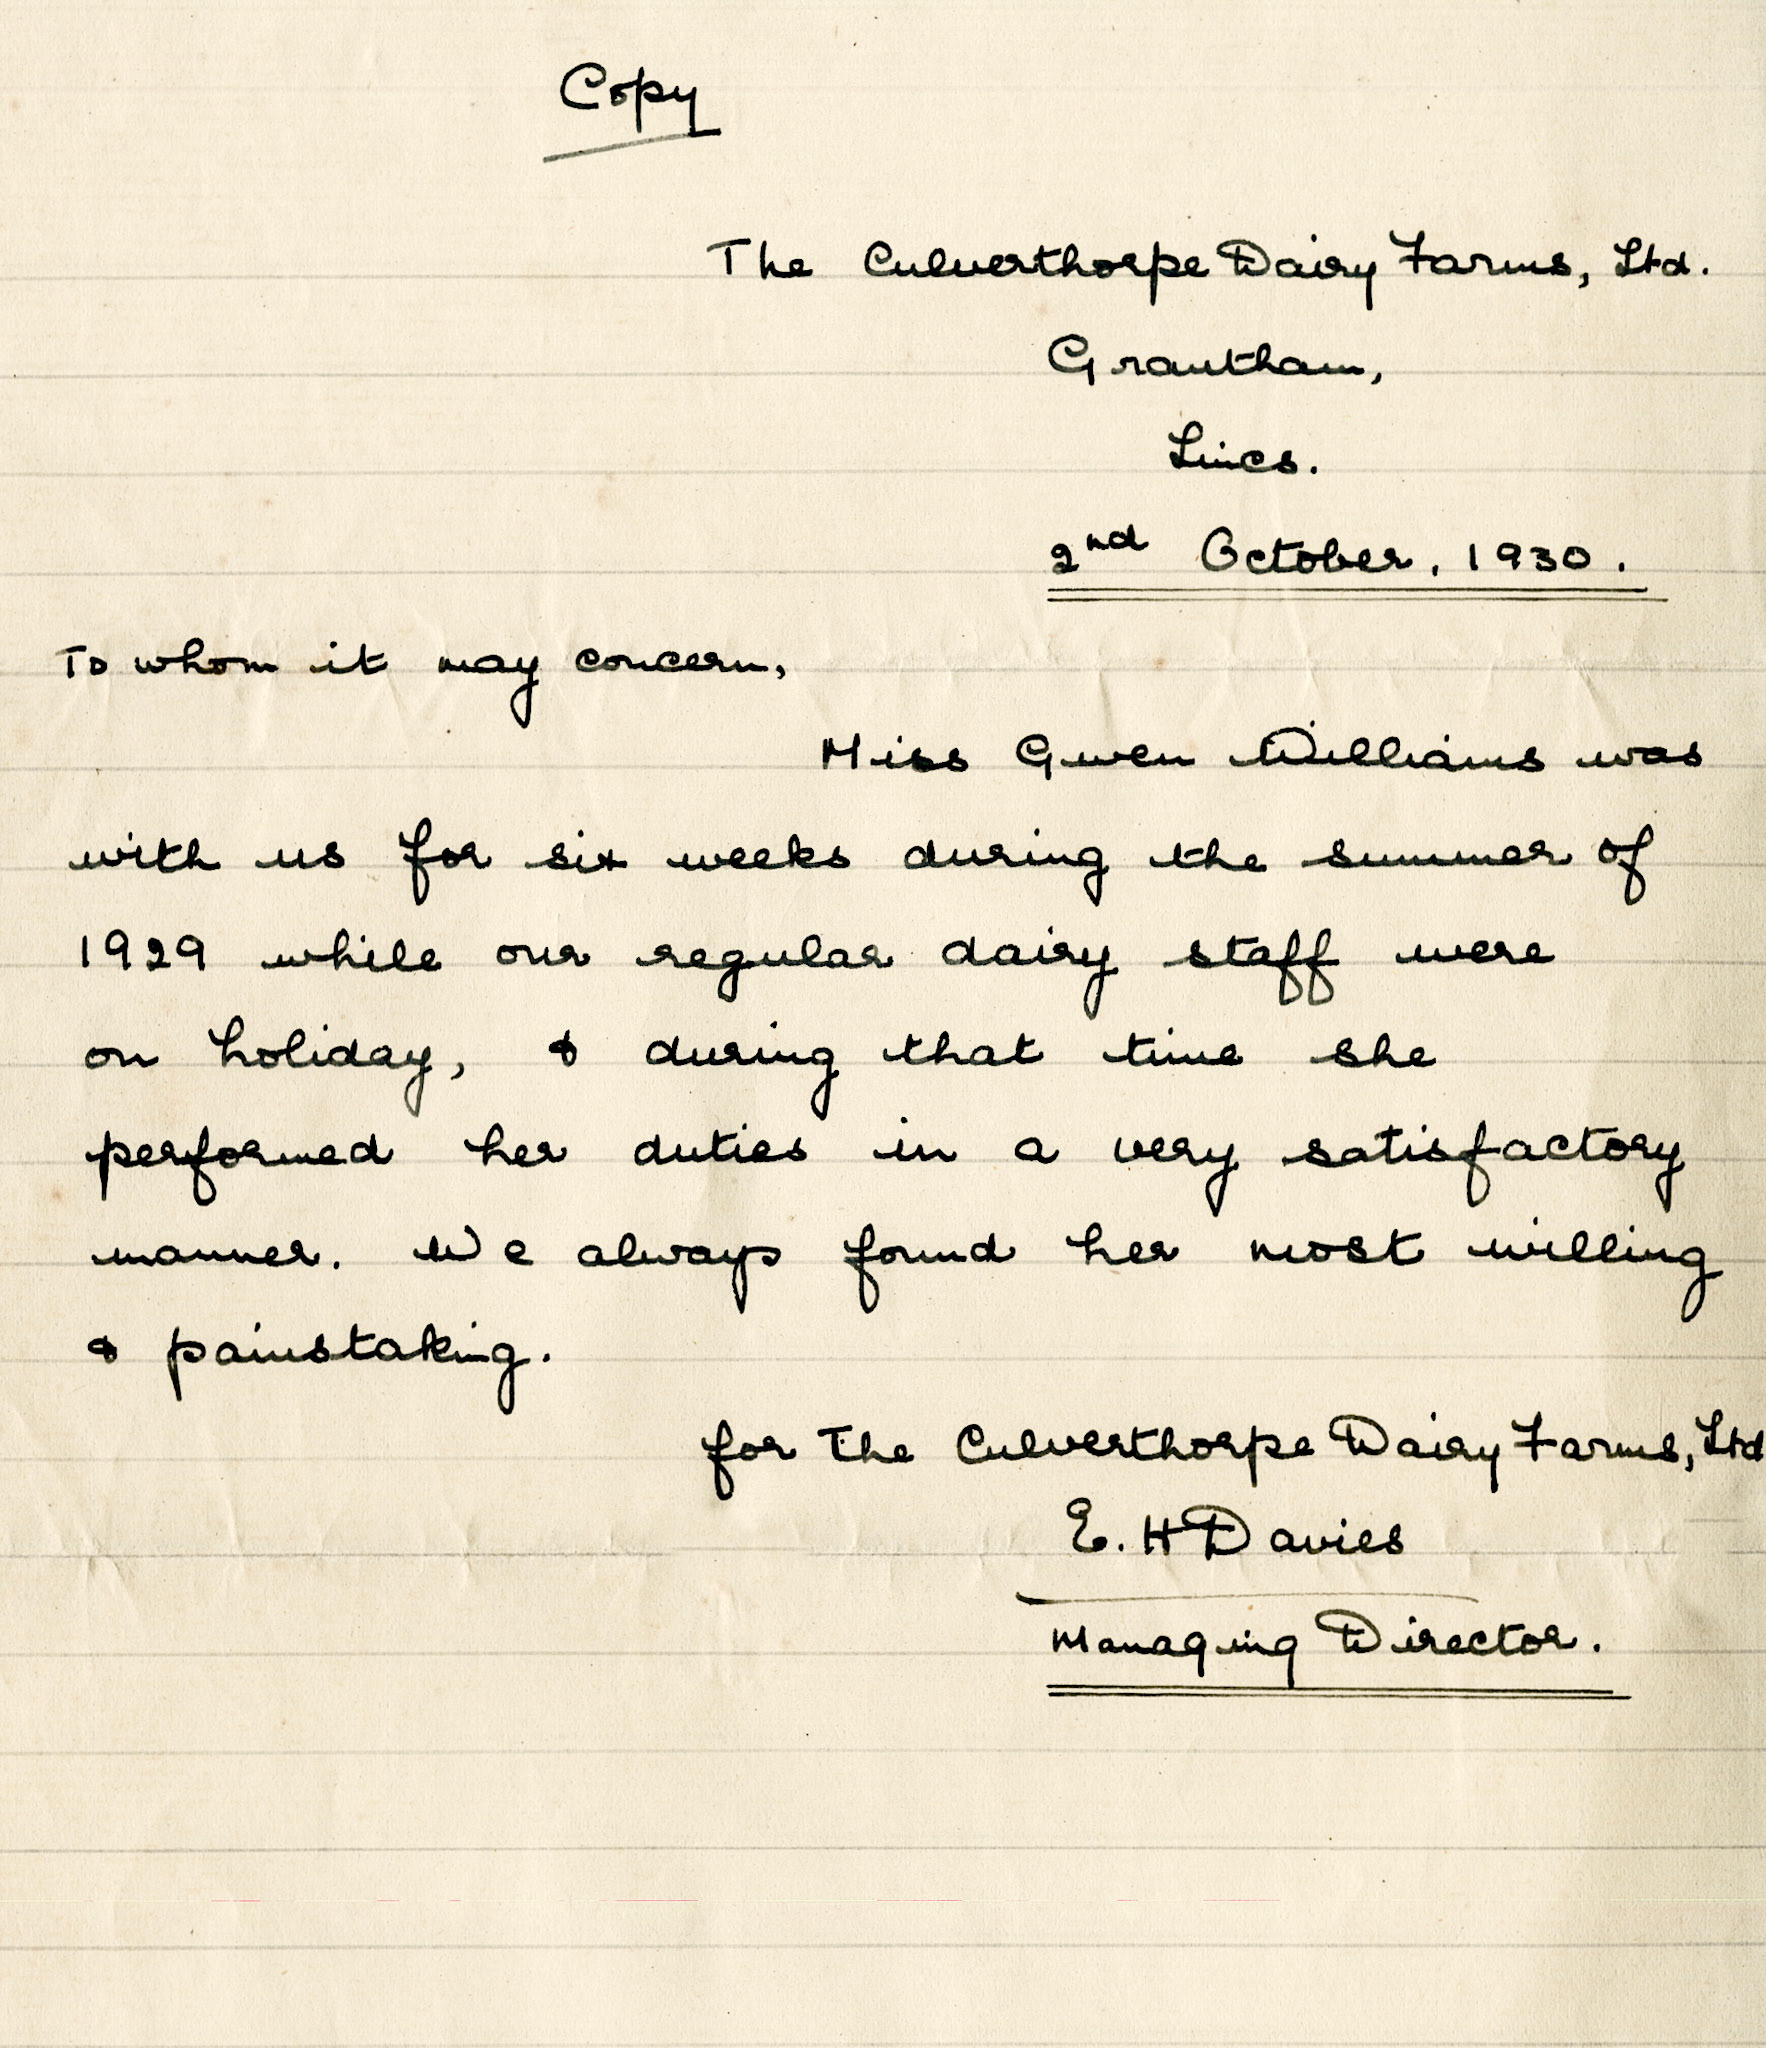 Copy
The Culverthorpe Dairy Farms, Ltd.
Grantham,
Lincs.
2nd October, 1930.
To whom it may concern,
Miss Gwen Williams was
with us for six weeks during the summer of
1929 while our regular dairy staff were
on holiday, & during that time she
performed her duties in a very satisfactory
manner. We always found her most willing
& painstaking.
for The Culverthorpe Dairy Farms, Ltd
E. H Davies
Managing Director.